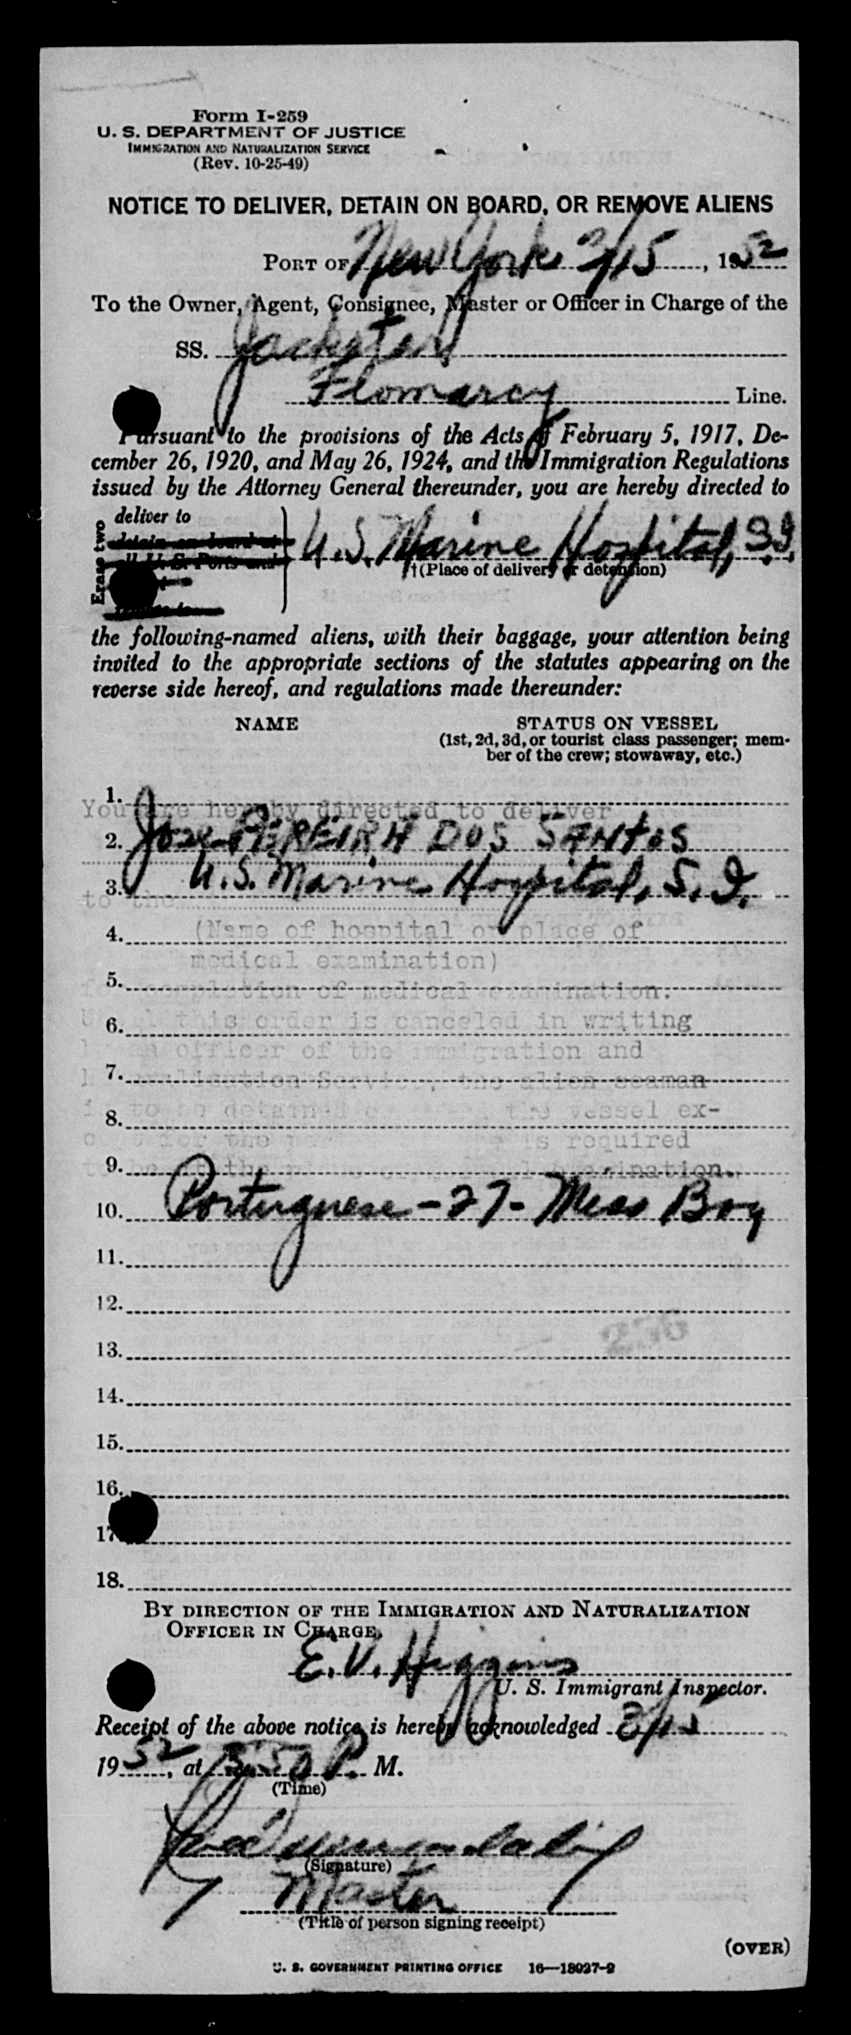 Form I-259
U. S. DEPARTMENT OF JUSTICE
IMMIGRATION AND NATURALIZATION SERVICE
(Rev. 10-25-49)
NOTICE TO DELIVER, DETAIN ON BOARD, OR REMOVE ALIENS
PORT OF New York 3/15, 1952
To the Owner, Agent, Consignee, Master or Officer in Charge of the
SS. Jackstar
Flomarcy Line.
Pursuant to the provisions of the Acts of February 5, 1917, De-
cember 26, 1920, and May 26, 1924, and the Immigration Regulations
issued by the Attorney General thereunder, you are hereby directed to
Erase two
deliver to
detain on board at
all U. S. Ports and
U.S. Marine Hospital, S.I.
†(Place of delivery or detention)
the following-named aliens, with their baggage, your attention being
invited to the appropriate sections of the statutes appearing on the
reverse side hereof, and regulations made thereunder:
NAME STATUS ON VESSEL
(1st, 2d, 3d, or tourist class passenger; mem-
ber of the crew; stowaway, etc.)
1.
You are hereby directed to deliver
2. Jose PEREIRA DOS SANTOS
3. U.S. Marine Hospital, S.I.
to the
4. (Name of hospital or place of
medical examination)
5. completion of medical examination.
6. this order is canceled in writing
officer of the immigration and
7. Service, the alien seaman
to be detained the vessel ex-
8.
for the is required
9. to be at the examination.
10. Portuguese - 27 - Mess Boy
11.
12.
276
13.
14.
15.
16.
17.
18.
BY DIRECTION OF THE IMMIGRATION AND NATURALIZATION
OFFICER IN CHARGE,
E.V. Higgins
U. S. Immigrant Inspector.
Receipt of the above notice is hereby acknowledged 3/15
1952, at P. M.
(Time)
(Signature)
Master
(Title of person signing receipt)
(OVER)
U. S. GOVERNMENT PRINTING OFFICE 16—18027-2